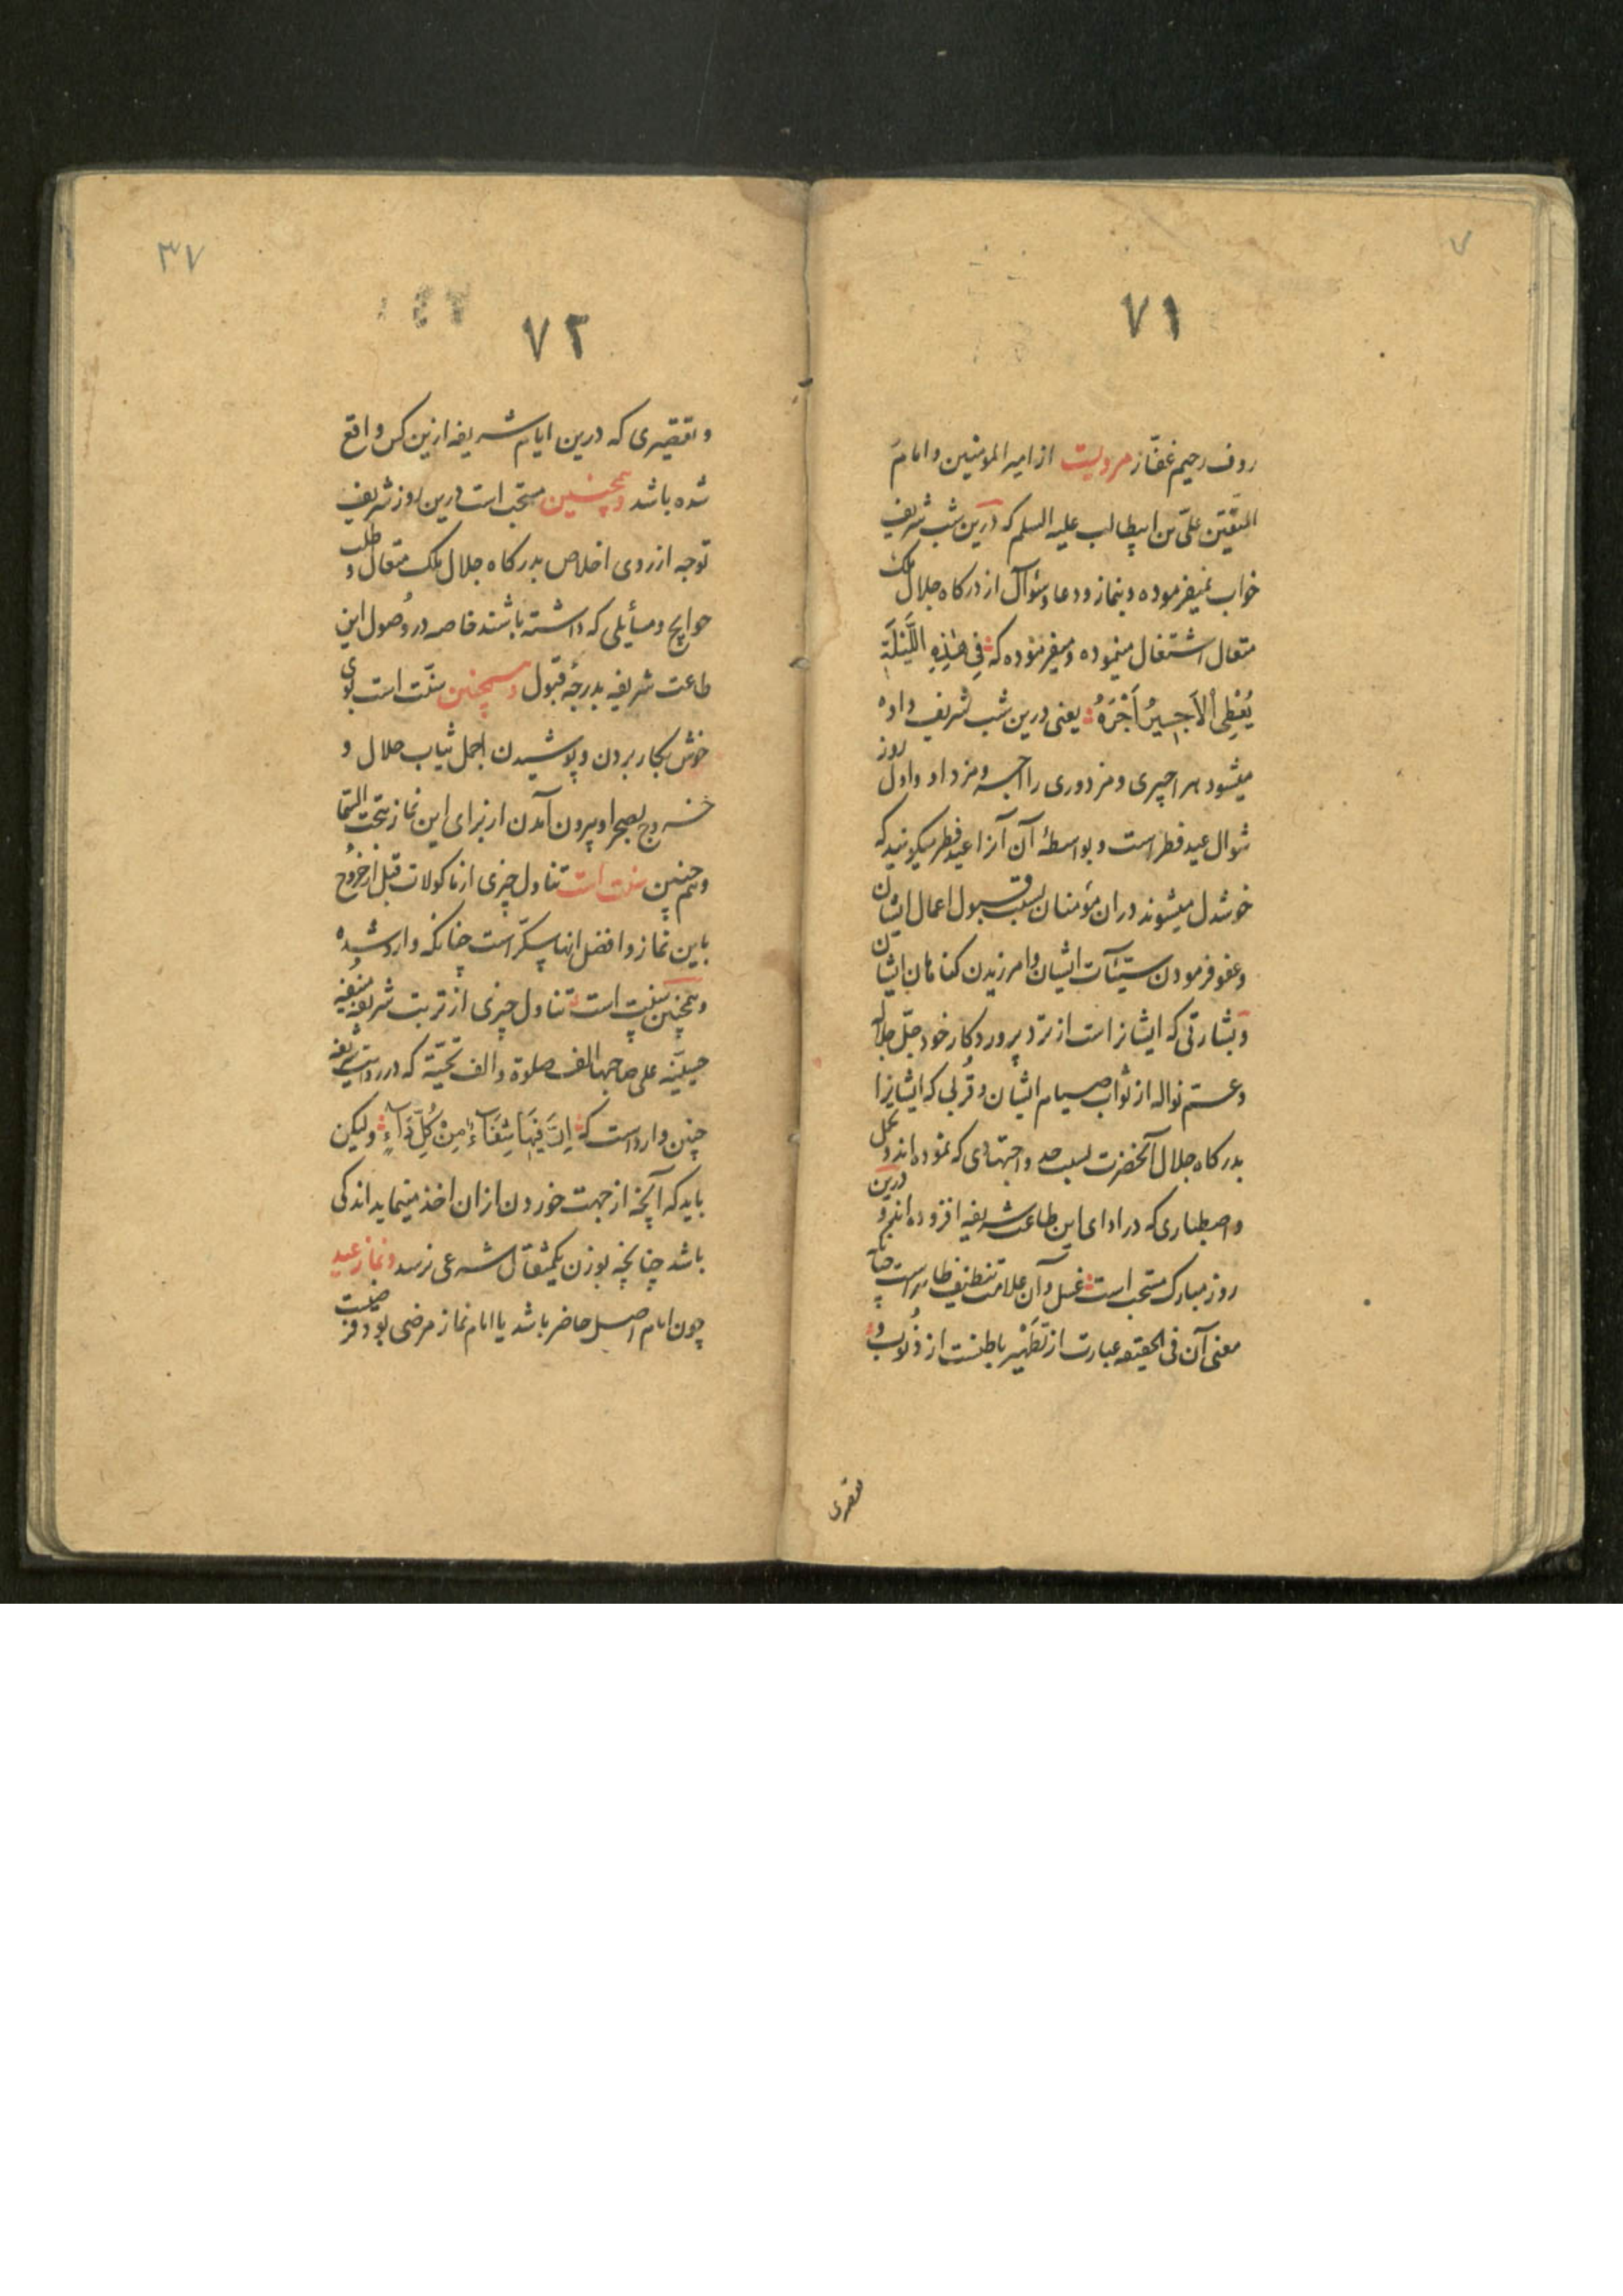 ۷۱
روف رحیم غفّار مرویست از امیر المؤمنین و امام
المتّقین علیّ بن ابیطالب علیه السلم که درین شب شریف
خواب نمیفرموده و بنماز و دعا و سؤال از درکاه جلال ملک
متعال اشتغال مینموده و میفرموده که فِی هٰذِهِ اللَّیْلَةِ
یُعْطِی الْاَجِیرُ اَجْرَهُ یعنی درین شب شریف داده
میشود هر اجیری و مزدوری را اجر و مزد او و اول روز
شوال عید فطر است و بواسطهٔ آن آنرا عید فطر میکویند که
خوشدل میشوند دران مؤمنان بسبب قبول اعمال ایشان
و عفو فرمودن سیّئآت ایشان و امرزیدن کناهان ایشان
و بشارتی که ایشانراست از نزد پروردکار خود جلّ جلاله
و عمّ نواله از ثواب صیام ایشان و قُربی که ایشانرا
بدرکاه جلال آنحضرت بسبب جد و اجتهادی که نموده اند و تحمل
و اصطباری که در ادای این طاعت شریفه افزوده اند و درین
روز مبارک مستحب است غسل و آن علامت تنظیف ظاهر است چنانکه
معنی آن فی الحقیقه عبارت از تَطْهیر باطنست از ذُنُوب و
تقصیری
۳۷
۷۲
و تقصیری که درین ایام شریفه ازین کس واقع
شده باشد و همچنین مستحب است درین روز شریف
توجه از روی اخلاص بدرکاه جلال ملک متعال و طلب
حوایج و مسأیلی که داشته باشند خاصه در وُصول این
طاعت شریفه بدرجهٔ قبول و همچنین سنّت است بوی
خوش بکار بردن و پوشیدن اجمل ثیاب حلال و
خروج بصحرا و بیرون آمدن از برای این نماز بتحت السّما
و هم چنین سنت است تناول چیزی از ماکولات قبل از خروج
باین نماز و افضل انها سکّر است چنانکه وارد شده
و همچنین سنت است تناول چیزی از تربت شریفه منیفه
حسینیّه علی صاحبها الف صلوة و الف تحیّة که در روایت شریفه
چنین وارد است که اِنَّ فِیهَا شِفَآءً مِنْ کُلِّ دَآءٍ ولیکن
باید که آنچه از جهت خوردن ازان اخذ مینماید اندکی
باشد چنانچه بوزن یکمثقال شرعی نرسد و نماز عید
چون امام اصل حاضر باشد یا امام نماز مرضی بود فریضست